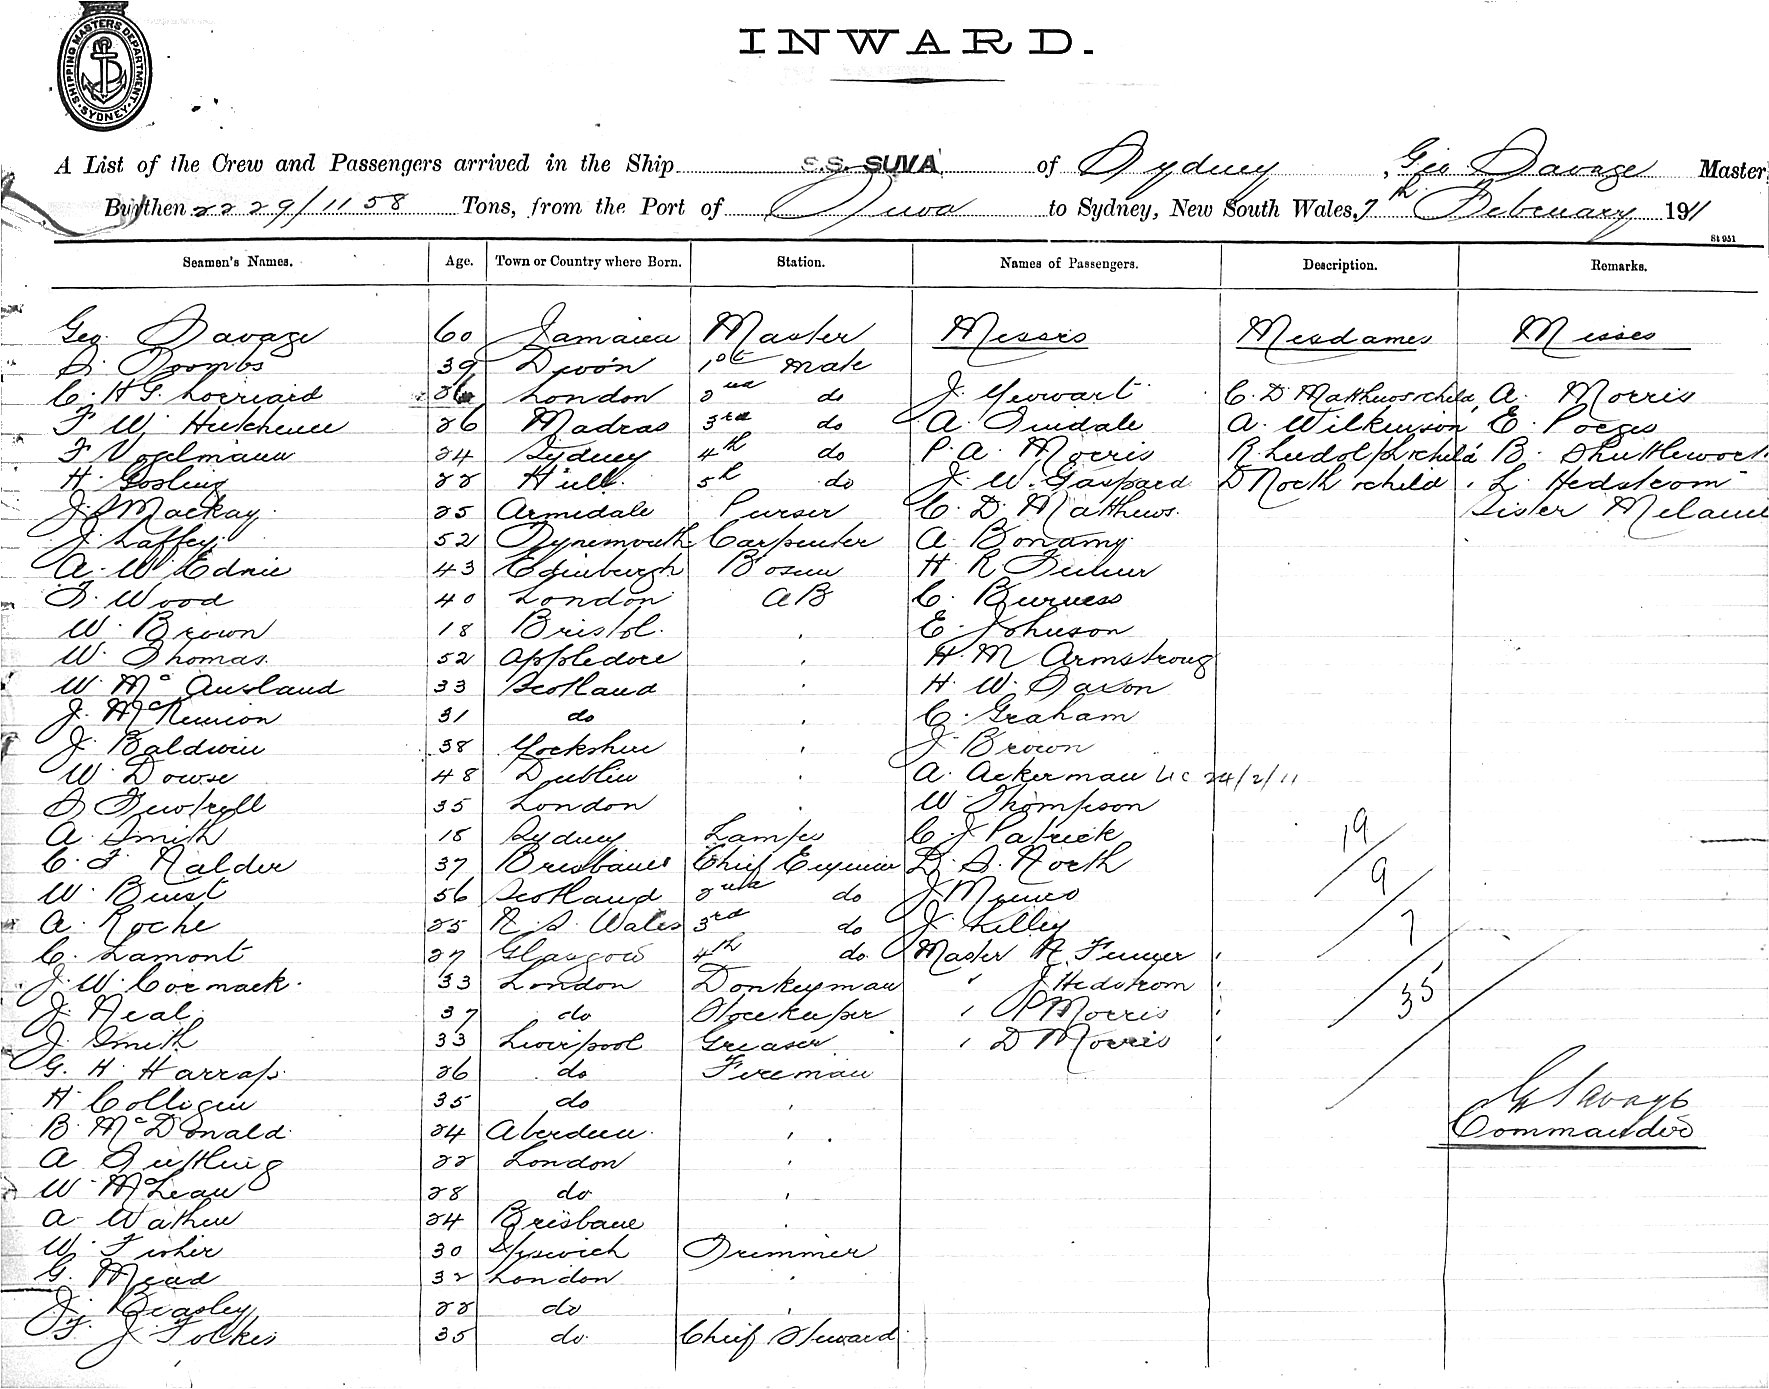 SHIPPING MASTERS DEPARTMENT. SYDNEY
INWARD.
A List of the Crew and Passengers arrived in the Ship S.S. SUVA of Sydney, Geo Savage Master
Burthen 2229/1158 Tons, from the Port of Suva to Sydney, New South Wales, 7th February 1911
St 951
Seamen's Names. Age. Town or Country where Born. Station. Names of Passengers. Description. Remarks.
Geo Savage 60 Jamaica Master Messrs Mesdames Misses
S. Toombs 39 Devon 1st mate
C. H. G. 26 London 2nd do J. C. D. Matthews & child, A. Morris
F. W. 26 Madras 3rd do A. Tindale A. Wilkinson E.
F Vogelmann 24 Sydney 4th do P. A. Morris R. Ludolph & child B. Shuttlewort
H. Gosling 22 Hull 5th do J. W. Gaspard D North & child, L. Hedstrom
J. Mackay. 25 Armidale Purser C. D. Matthews. Sister Melanie
J. Laffey. 52 Tynemouth Carpenter A. Bonamy.
A. W. Ednie 43 Edinburgh Bosun H. R.
T. Wood 40 London AB C. Burness
W. Brown 18 Bristol. " E. Johnson
W. Thomas. 52 Appledore " H. M Armstrong
W. McAusland 33 Scotland " H. W. Saxon
J. McKinnon 31 do " C. Graham
J. Baldwin 38 Yorkshire " J. Brown
W. Dowse 48 Dublin " A. Ackerman 24/2/11
35 London " W. Thompson
A. Smith 18 Sydney Lamps C. J Patrick 19
C. F. Nalder 37 Brisbane Chief Engineer D. S. North 9
W. Buist 56 Scotland 2nd do J Munro
A. Roche 25 N. S. Wales 3rd do J. 7
C. Lamont 27 Glasgow 4th do. Master N. "
J. W. Cormack. 33 London Donkeyman " J Hedstrom " 35
J. Neal. 37 do Storekeeper " P Morris "
J. Smith 33 Liverpool Greaser. " D Morris "
G. H. Harrap. 26 do Fireman
H Colligan 35 do " G Savage
B. McDonald. 24 Aberdeen. " Commander
A 22 London "
W. McLean 28 do "
A. Wathen 24 Brisbane "
W. Fisher 30 Ipswich Trimmer
G. Mead 32 London "
J. Beagley 22 do "
J. Folkes 35 do. Chief Steward